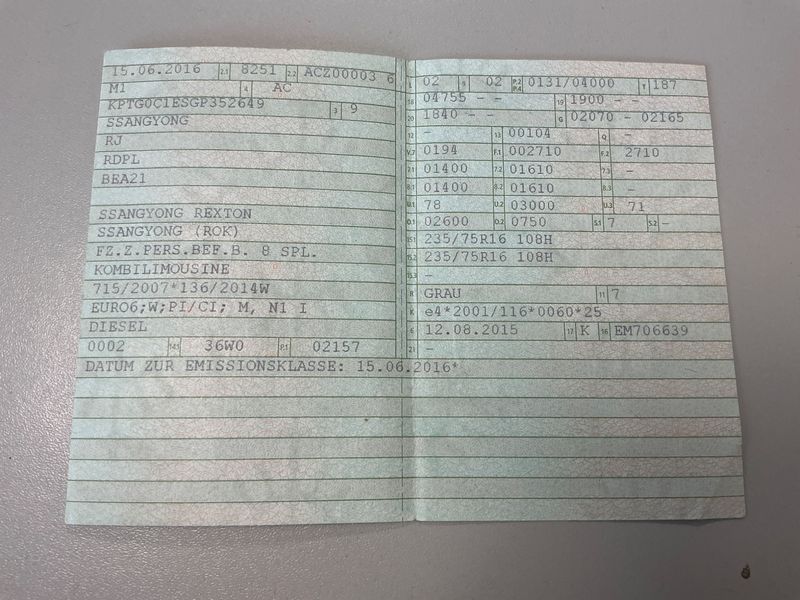 15.06.2016 2.1 8251 2.2 ACZ00003 6
M1 4 AC
KPTG0C1ESGP352649 3 9
SSANGYONG
RJ
RDPL
BEA21
SSANGYONG REXTON
SSANGYONG (ROK)
FZ.Z.PERS.BEF.B. 8 SPL.
KOMBILIMOUSINE
715/2007*136/2014W
EURO6;W;PI/CI; M, N1 I
DIESEL
0002 14.1 36W0 P.1 02157
DATUM ZUR EMISSIONSKLASSE: 15.06.2016*
L 02 9 02 P.2 P.4 0131/04000 T 187
18 04755 - - 19 1900 - -
20 1840 - - G 02070 - 02165
12 - 13 00104 Q -
V.7 0194 F.1 002710 F.2 2710
7.1 01400 7.2 01610 7.3 -
8.1 01400 8.2 01610 8.3 -
U.1 78 U.2 03000 U.3 71
O.1 02600 O.2 0750 S.1 7 S.2 -
15.1 235/75R16 108H
15.2 235/75R16 108H
15.3 -
R GRAU 11 7
K e4*2001/116*0060*25
6 12.08.2015 17 K 16 EM706639
21 -